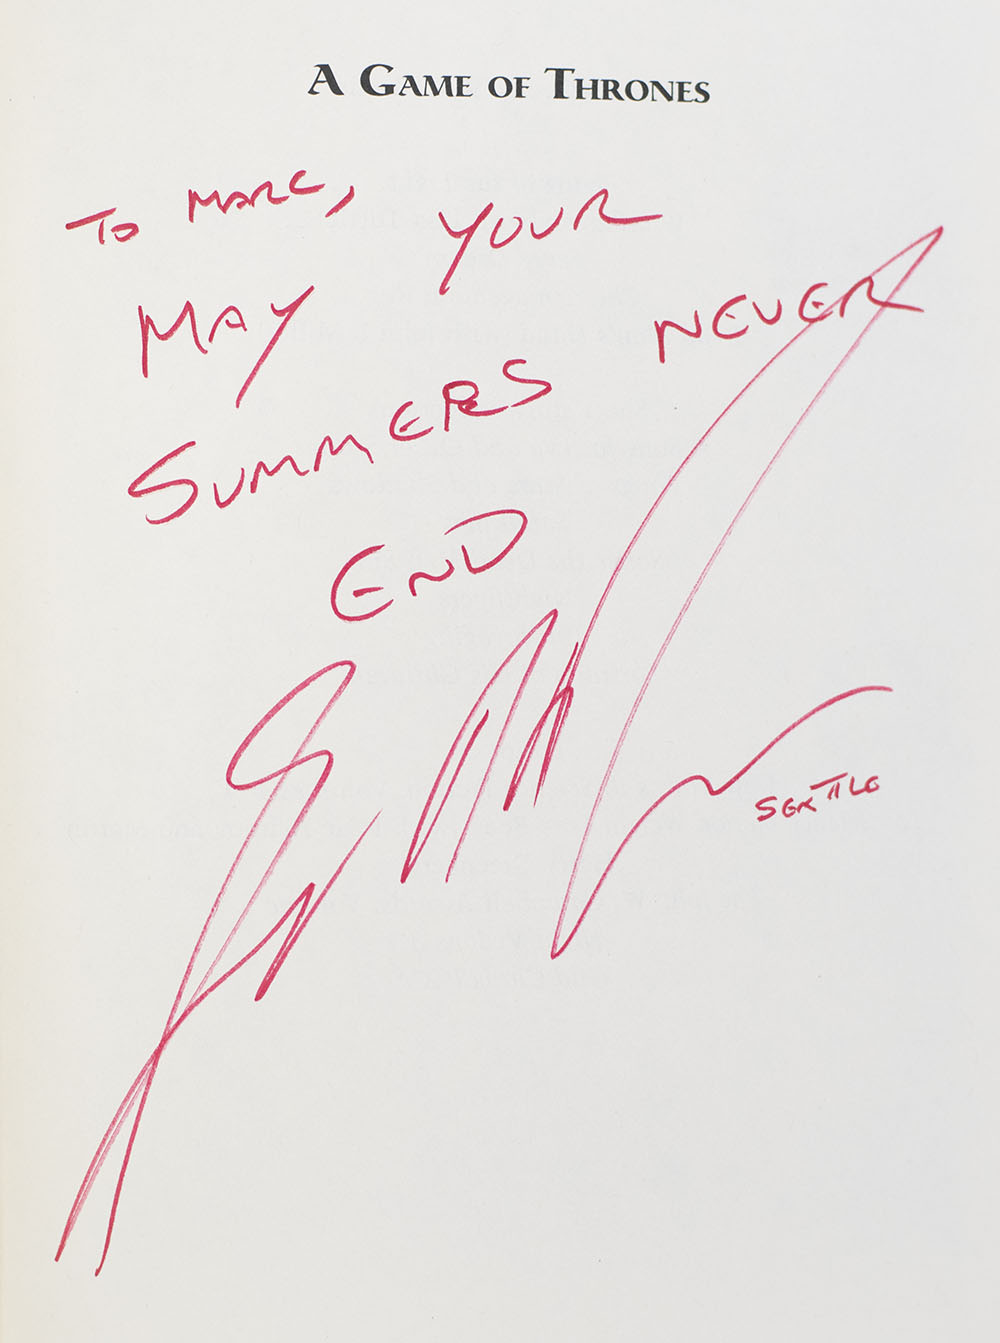 A GAME OF THRONES
TO MARC,
MAY YOUR
SUMMERS NEVER
END
SEATTLE